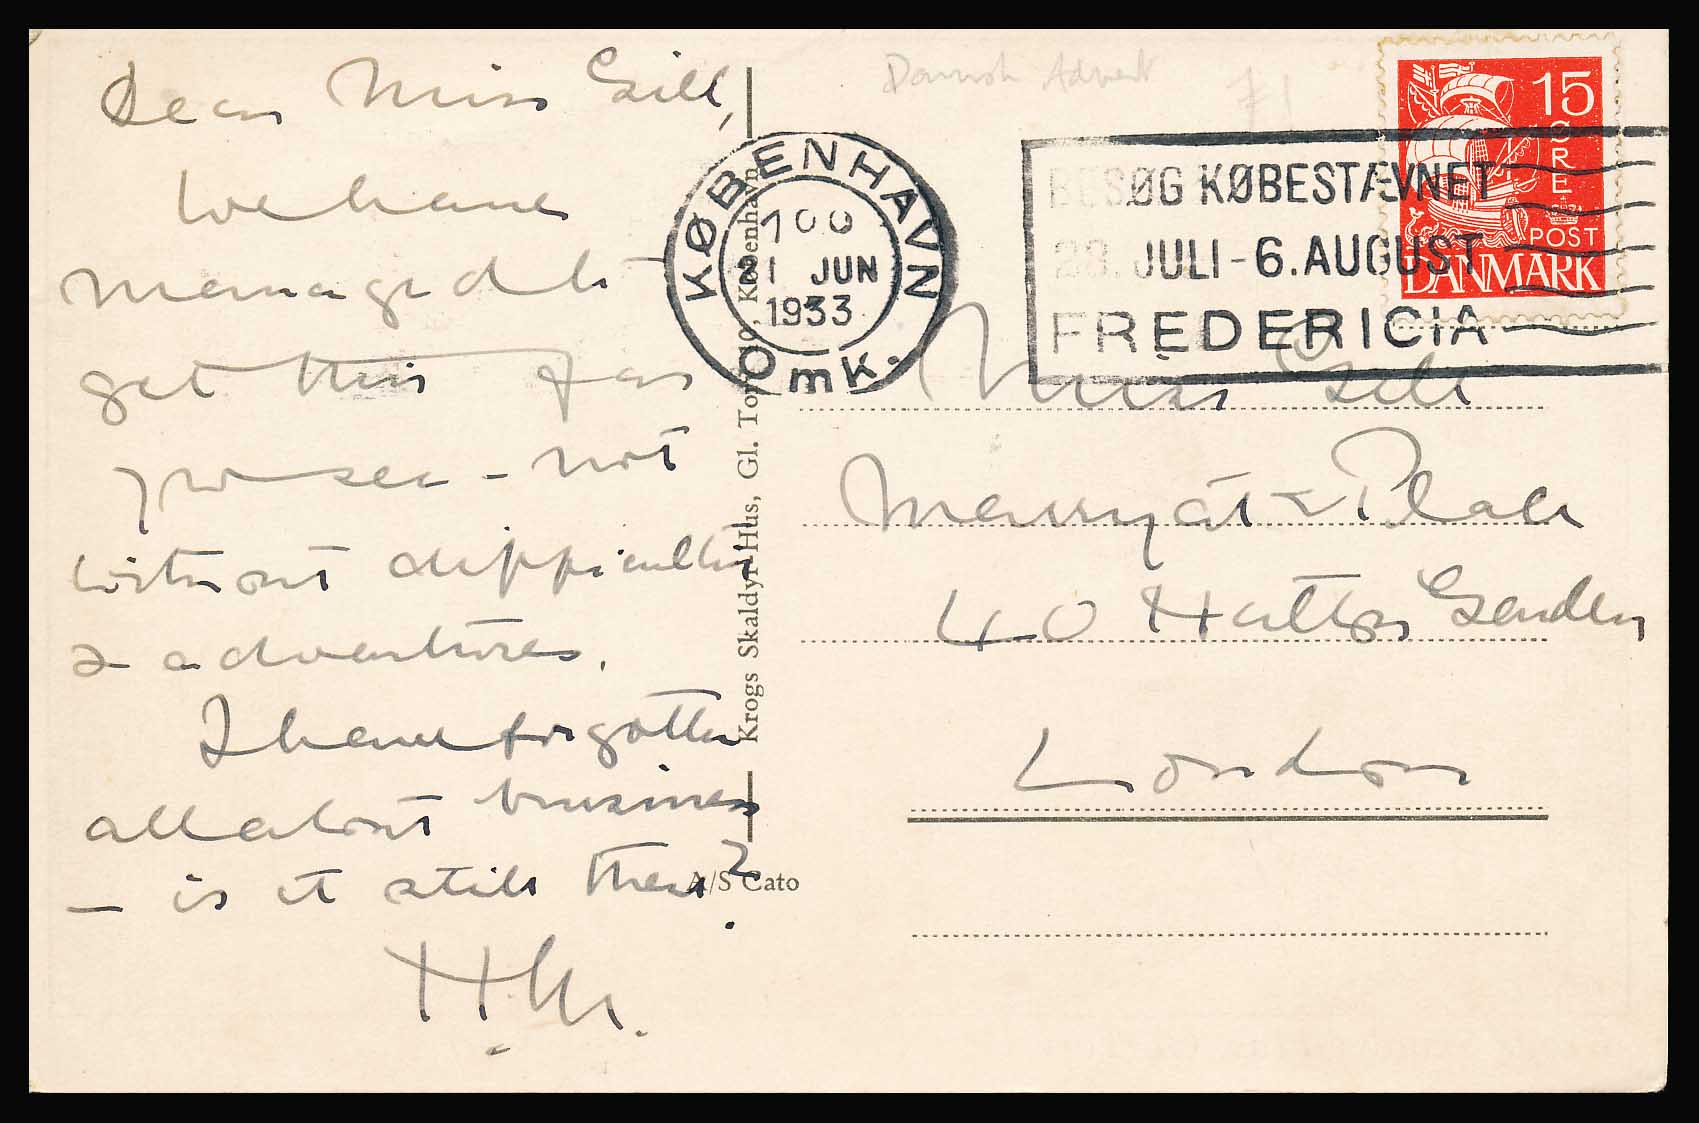 Dear Miss Gill,
We have
managed to
get this far
you see - not
without difficulties
& adventures.
I have forgotten
all about business
- is it still there?
H.M.
Danish Advert
£1
KØBENHAVN
700
21 JUN
1933
OMK.
BESØG KØBESTÆVNET
28. JULI - 6. AUGUST
FREDERICIA
15
ØRE
POST
DANMARK
Krogs Skaldyr-Hus, Gl. Torv 10, København
A/S Cato
Miss Gill
Marryat & Place
40 Hatton Garden
London